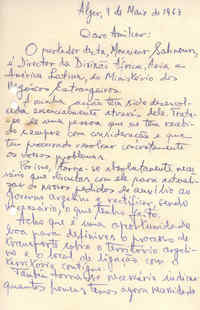 Alger, 9 de Maio de 1963
Caro Amílcar:
O portador desta, Monsieur
é Director da Divisão África, Ásia e
América Latina, do Ministério dos
Negócios Estrangeiros.
A minha acção tem sido desenvol-
vida essencialmente através dele. Trata-
se de uma pessoa que me tem recebi-
do sempre com consideração e que
tem procurado resolver concretamente
os nossos problemas.
torna-se absolutamente neces-
sário que contactes com ele para
os nossos pedidos de auxílio ao
Governo argelino e rectificar, sendo
necessário, o que tenho feito.
Acho que é uma oportunidade
boa para definires o processo de
transporte sobre o território argeli-
no e o local de ligação com o
território contíguo.
Também torna-se necessário indicar
quantas pessoas temos agora necessidade